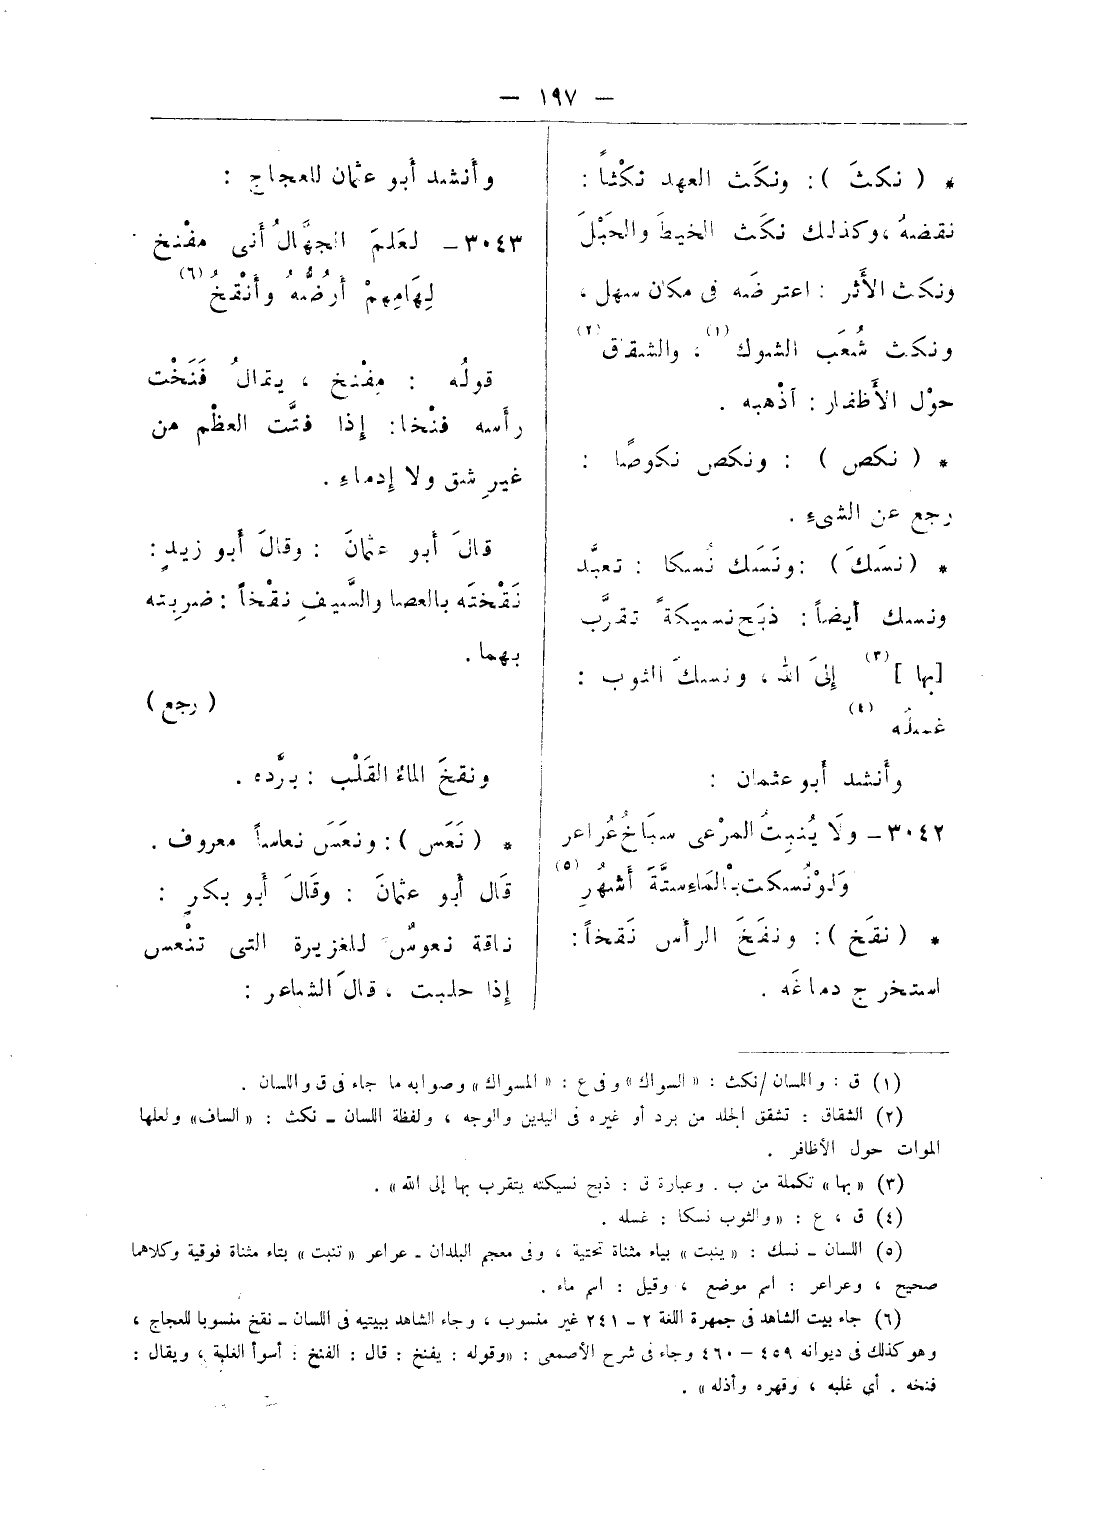 — ١٩٧ —
* ( نكثَ ): ونكَث العهد نكْثاً :
نقضهُ ، وكذلك نكَث الخيطَ والحَبْلَ
ونكث الأَثر : اعترضَه فى مكان سهل ،
ونكث شُعَب الشوك (١) ، والشقاق (٢)
حوْل الأَظفار : أذْهبه .
* ( نكص ) : ونكص نكوصًا :
رجع عن الشىءِ .
* (نسَكَ ) : ونَسَك نُسكا : تعبَّد
ونسك أيضاً : ذبَح نسيكةً تقرَّب
[بها ] (٣) إلىَ الله ، ونسكَ الثوب :
غسلُه (٤)
وأنشد أبو عثمان :
٣٠٤٢ – ولَا يُنبِتُ المرْعى سبَاخُ عُراعر
وَلوْ نُسكت بالْمَاءِ ستَّةَ أَشهُرِ (٥)
* ( نقَخ ): ونقَخَ الرأس نَقخاً :
استخرج دماغَه .
وأنشد أبو عثمان للعجاج :
٣٠٤٣ – لعَلمَ الجهَّالُ أَنى مفْنخ
لِهَامِهِمْ أَرُضُّهُ وأَنْقخُ (٦)
قولُه : مِفْنخ ، يقالُ فَنَخْت
رأسه فنْخا : إذا فتَّت العظْم من
غيرِ شق ولا إدماءِ .
قالَ أبو عثمانَ : وقالَ أبو زيدٍ :
نَقْختَه بالعصا والسَّيفِ نقْخاً : ضربته
بهما .
( رجع )
ونقخَ الماءُ القَلْب : برَّده .
* ( نَعَس ) : ونعَسَ نعاساً معروف .
قَال أبو عثمانَ : وقَالَ أبو بكرٍ :
ناقة نعوسٌ للغزيرة التى تنْعس
إذا حلبت ، قالَ الشاعر :
(١) ق : واللسان/نكث : «السواك» وفى ع : «المسواك» وصوابه ما جاء فى ق واللسان .
(٢) الشقاق : تشقق الجلد من برد أو غيره فى اليدين والوجه ، ولفظة اللسان – نكث : «الساف» ولعلها
الموات حول الأظافر .
(٣) «بها» تكملة من ب . وعبارة ق : ذبح نسيكته يتقرب بها إلى الله» .
(٤) ق ، ع : «والثوب نسكا : غسله .
(٥) اللسان – نسك : «ينبت» بياء مثناة تحتية ، وفى معجم البلدان – عراعر «تنبت» بتاء مثناة فوقية وكلاهما
صحيح ، وعراعر : اسم موضع ، وقيل : اسم ماء .
(٦) جاء بيت الشاهد فى جمهرة اللغة ٢ – ٢٤١ غير منسوب ، وجاء الشاهد ببيتيه فى اللسان – نقخ منسوبا للعجاج ،
وهو كذلك فى ديوانه ٤٥٩ – ٤٦٠ وجاء فى شرح الأصمعى : «وقوله : يفنخ : قال : الفنخ : أسوأ الغلبة ، ويقال :
فنخه . أي غلبه ، وقهره وأذله» .